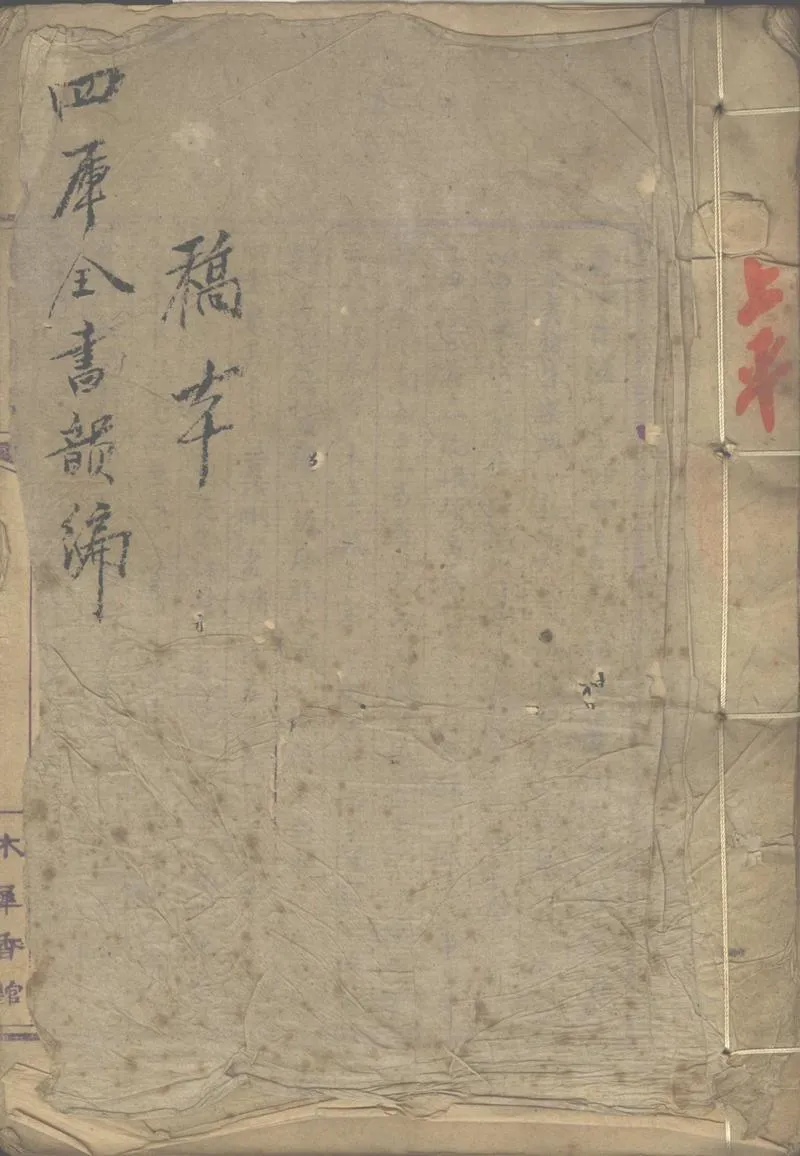 上平
稿本
四库全書韻编
木犀香館